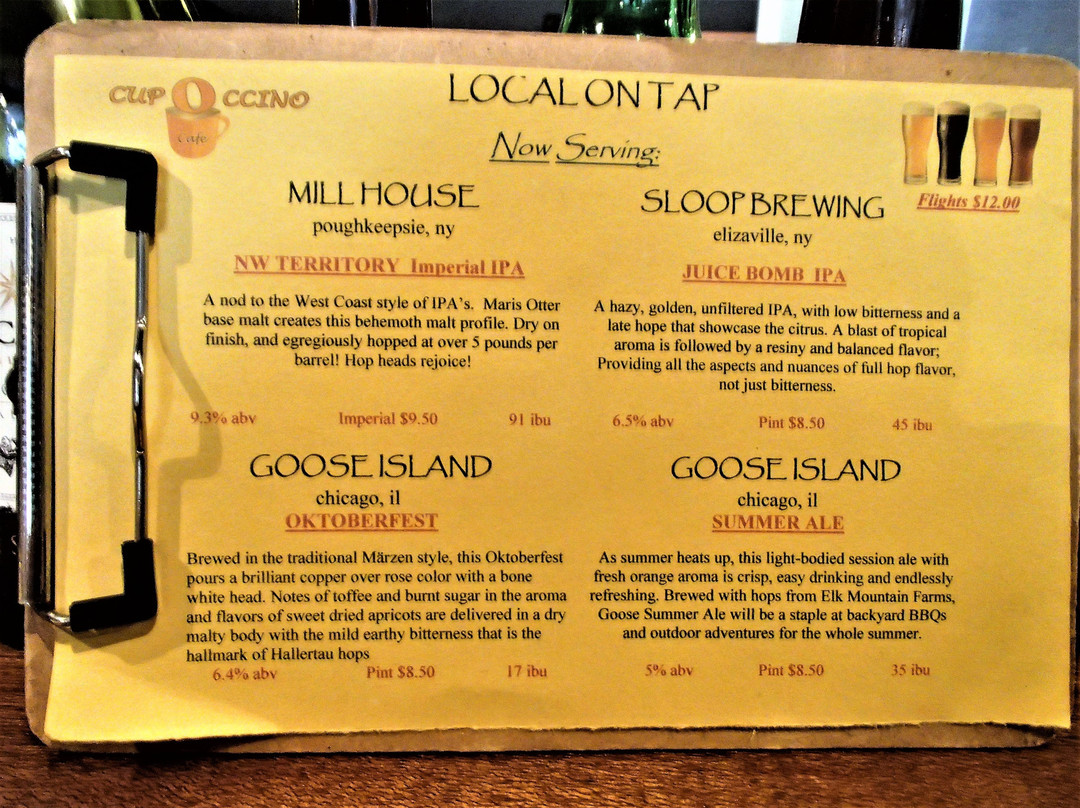 CUP O CCINO
cafe
LOCAL ON TAP
Now Serving:
Flights $12.00
MILL HOUSE
poughkeepsie, ny
NW TERRITORY Imperial IPA
A nod to the West Coast style of IPA's. Maris Otter
base malt creates this behemoth malt profile. Dry on
finish, and egregiously hopped at over 5 pounds per
barrel! Hop heads rejoice!
9.3% abv Imperial $9.50 91 ibu
SLOOP BREWING
elizaville, ny
JUICE BOMB IPA
A hazy, golden, unfiltered IPA, with low bitterness and a
late hope that showcase the citrus. A blast of tropical
aroma is followed by a resiny and balanced flavor;
Providing all the aspects and nuances of full hop flavor,
not just bitterness.
6.5% abv Pint $8.50 45 ibu
GOOSE ISLAND
chicago, il
OKTOBERFEST
Brewed in the traditional Märzen style, this Oktoberfest
pours a brilliant copper over rose color with a bone
white head. Notes of toffee and burnt sugar in the aroma
and flavors of sweet dried apricots are delivered in a dry
malty body with the mild earthy bitterness that is the
hallmark of Hallertau hops
6.4% abv Pint $8.50 17 ibu
GOOSE ISLAND
chicago, il
SUMMER ALE
As summer heats up, this light-bodied session ale with
fresh orange aroma is crisp, easy drinking and endlessly
refreshing. Brewed with hops from Elk Mountain Farms,
Goose Summer Ale will be a staple at backyard BBQs
and outdoor adventures for the whole summer.
5% abv Pint $8.50 35 ibu